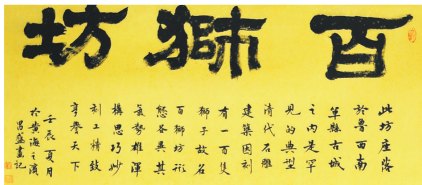 百獅坊
此坊座落
於魯西南
單縣古城
之内是罕
見的典型
清代石雕
建築因刻
有一百隻
獅子故名
百獅坊形
態各異其
氣勢雄渾
構思巧妙
刻工精致
享譽天下
壬辰夏月
於黄海之濱
昌盛書記